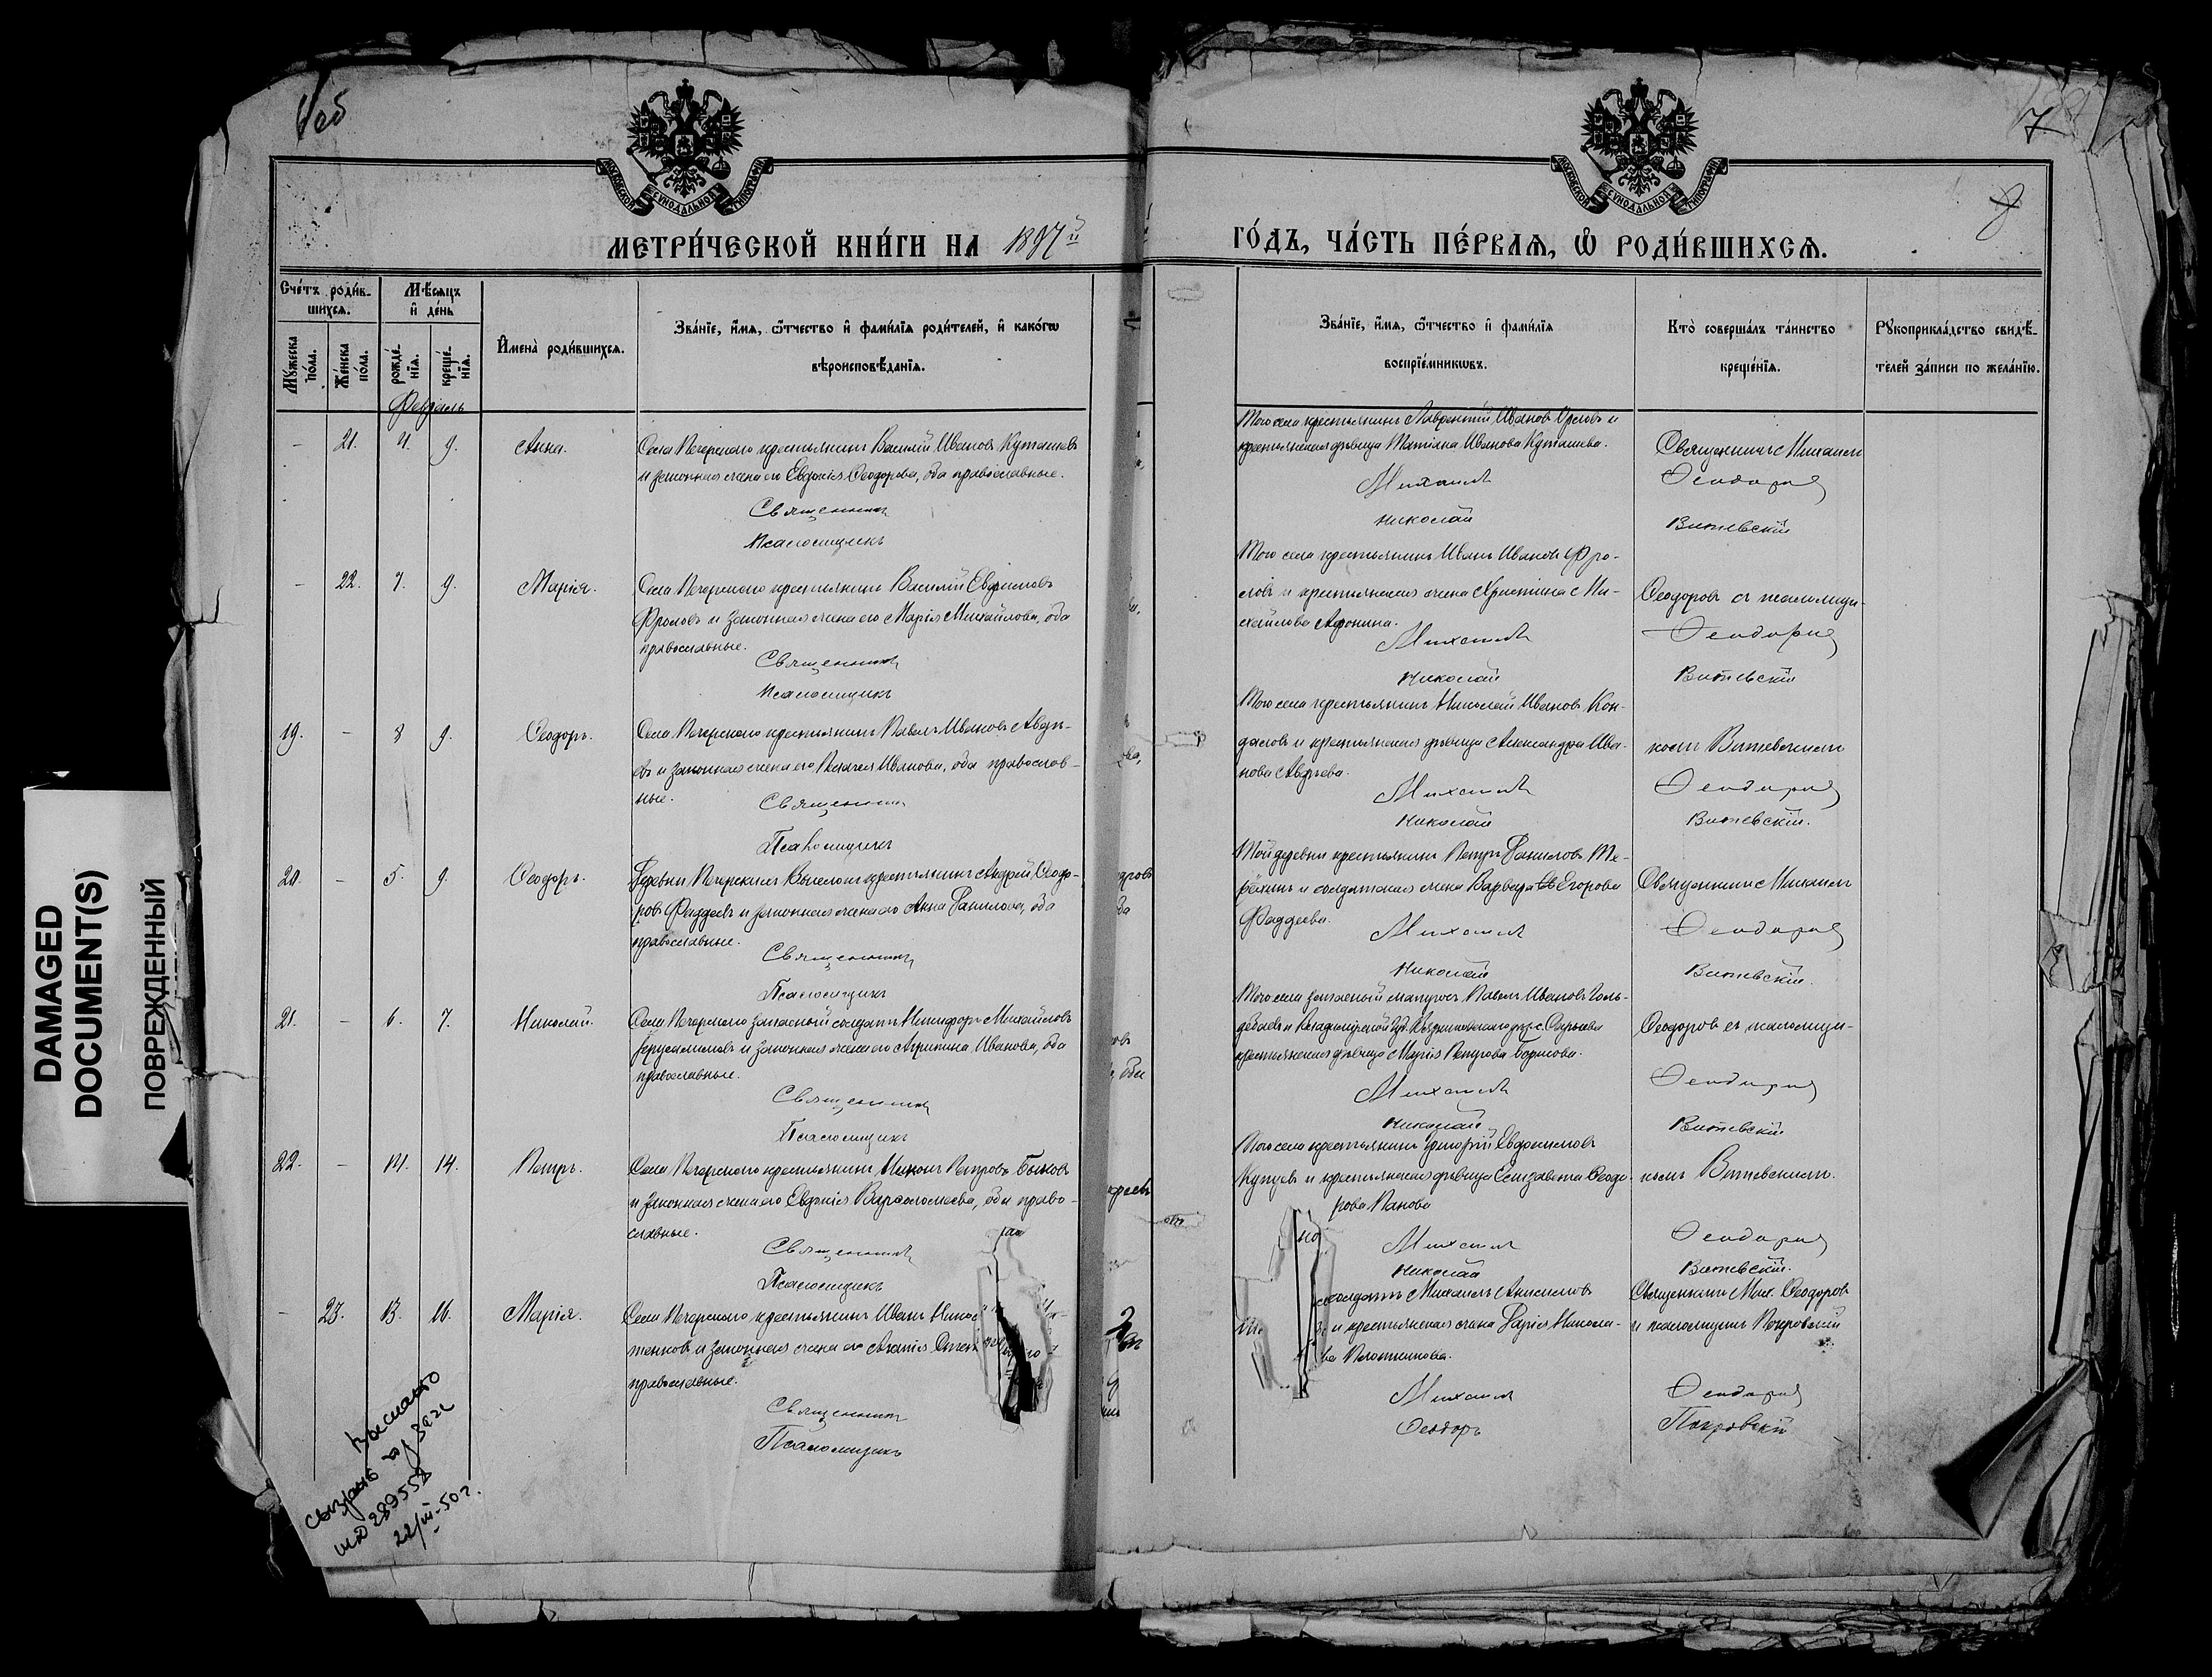 7
8
МОСКОВСКОЙ СѴНОДАЛЬНОЙ ТИПОГРАФІИ
МОСКОВСКОЙ СѴНОДАЛЬНОЙ ТИПОГРАФІИ
МЕТРИ́ЧЕСКОЙ КНИ́ГИ НА 1897й
ГО́ДЪ, ЧА́СТЬ ПЕ́РВАѦ, Ѽ РОДИ́ВШИХСѦ.
Сче́тъ роди́в-
шихсѧ.
Мꙋ́жеска по́ла.
Же́нска по́ла.
Мѣ́сѧцъ
и҆ де́нь
рожде́-
нїѧ.
креще́-
нїѧ.
И҆мена̀ роди́вшихсѧ.
Зва́нїе, и҆́мѧ, ѻ҆́тчество и҆ фами́лїѧ роди́телей, и҆ како́гѡ
вѣроисповѣ́данїѧ.
Зва́нїе, и҆́мѧ, ѻ҆́тчество и҆ фами́лїѧ
воспрїе́мникѡвъ.
Кто̀ соверша́лъ та́инство
креще́нїѧ.
Рꙋкоприкла́дство свидѣ́-
телей за́писи по жела́нїю.
Февраль
- 21. 4. 9. Анна.
Села Печерскаго крестьянинъ Василій Ивановъ Куташевъ
и законная жена его Евдокія Ѳеодорова, оба православные.
Священникъ
Псаломщикъ
Того села крестьянинъ Лаврентій Ивановъ Орловъ и
крестьянская дѣвица Татіана Иванова Куташева.
Михаилъ
Николай
Священникъ Михаилъ
Ѳеодоровъ
Витевскій
- 22. 7. 9. Марія.
Села Печерскаго крестьянинъ Василій Евфимовъ
Фроловъ и законная жена его Марія Михайлова, оба
православные.
Священникъ
Псаломщикъ
Того села крестьянинъ Иванъ Ивановъ Фро-
ловъ и крестьянская жена Христина Ми-
хайлова Афонина.
Михаилъ
Николай
Ѳеодоровъ съ псаломщи-
Ѳеодоровъ
Витевскій
19. - 8 9. Ѳеодоръ.
Села Печерскаго крестьянинъ Павелъ Ивановъ Авдѣ-
евъ и законная жена его Пелагея Иванова, оба православ-
ные.
Священникъ
Псаломщикъ
Того села крестьянинъ Николай Ивановъ Кон-
даловъ и крестьянская дѣвица Александра Ива-
нова Авдѣева.
Михаилъ
Николай
комъ Витевскимъ
Ѳеодоровъ
Витевскій.
20. - 5. 9. Ѳеодоръ.
Деревни Печерскихъ Выселокъ крестьянинъ Андрей Ѳеодо-
ровъ Фаддеевъ и законная жена его Анна Данилова, оба
православные.
Священникъ
Псаломщикъ
Той деревни крестьянинъ Петръ Даниловъ Те-
рёхинъ и солдатская жена Варвара Егорова
Фаддеева.
Михаилъ
Николай
Священникъ Михаилъ
Ѳеодоровъ
Витевскій.
21. - 6. 7. Николай.
Села Печерскаго запасный солдатъ Никифоръ Михайловъ
Іерусалимовъ и законная жена его Агрипина Иванова, оба
православные.
Священникъ
Псаломщикъ
Того села запасный матросъ Павелъ Ивановъ Голь-
крестьянская дѣвица Марія Петрова Борисова.
Михаилъ
Николай
Ѳеодоровъ съ псаломщи-
Ѳеодоровъ
Витевскій
22. - 14. 14. Петръ.
Села Печерскаго крестьянинъ Никонъ Петровъ Быковъ
и законная жена его Евдокія Варѳоломеева, оба право-
славные.
Священникъ
Псаломщикъ
Того села крестьянинъ Григорій Евдокимовъ
Купцовъ и крестьянская дѣвица Елизавета Ѳеодо-
рова Панова
Михаилъ
Николай
комъ Витевскимъ.
Ѳеодоровъ
Витевскій.
- 23. 13. 16. Марія.
Села Печерскаго крестьянинъ Иванъ
и законная жена его
православные.
Священникъ
Псаломщикъ
солдатъ Михаилъ Анисимовъ
и крестьянская жена Дарія Никола-
ва Плотникова.
Михаилъ
Ѳеодоръ
Священникъ Мих. Ѳеодоровъ
и псаломщикъ Покровскій
Ѳеодоровъ
Покровскій
22/III-50 г.
DAMAGED
DOCUMENT(S)
ПОВРЕЖДЕННЫЙ